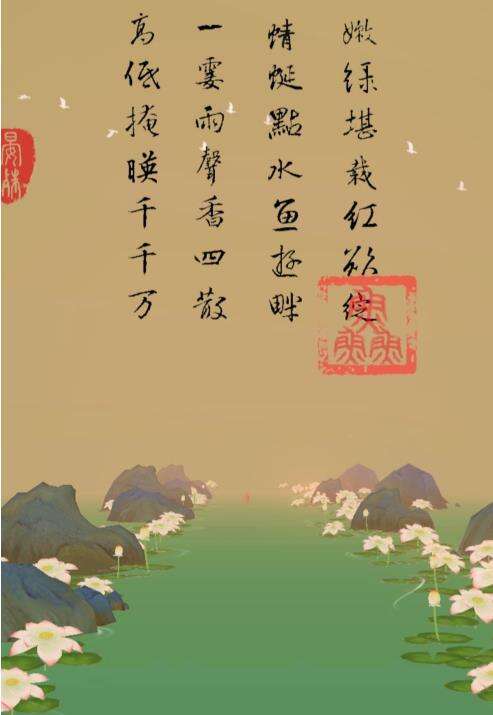 嫩绿堪裁红欲绽
蜻蜓點水魚游畔
一霎雨聲香四散
高低掩暎千千万
晏姝